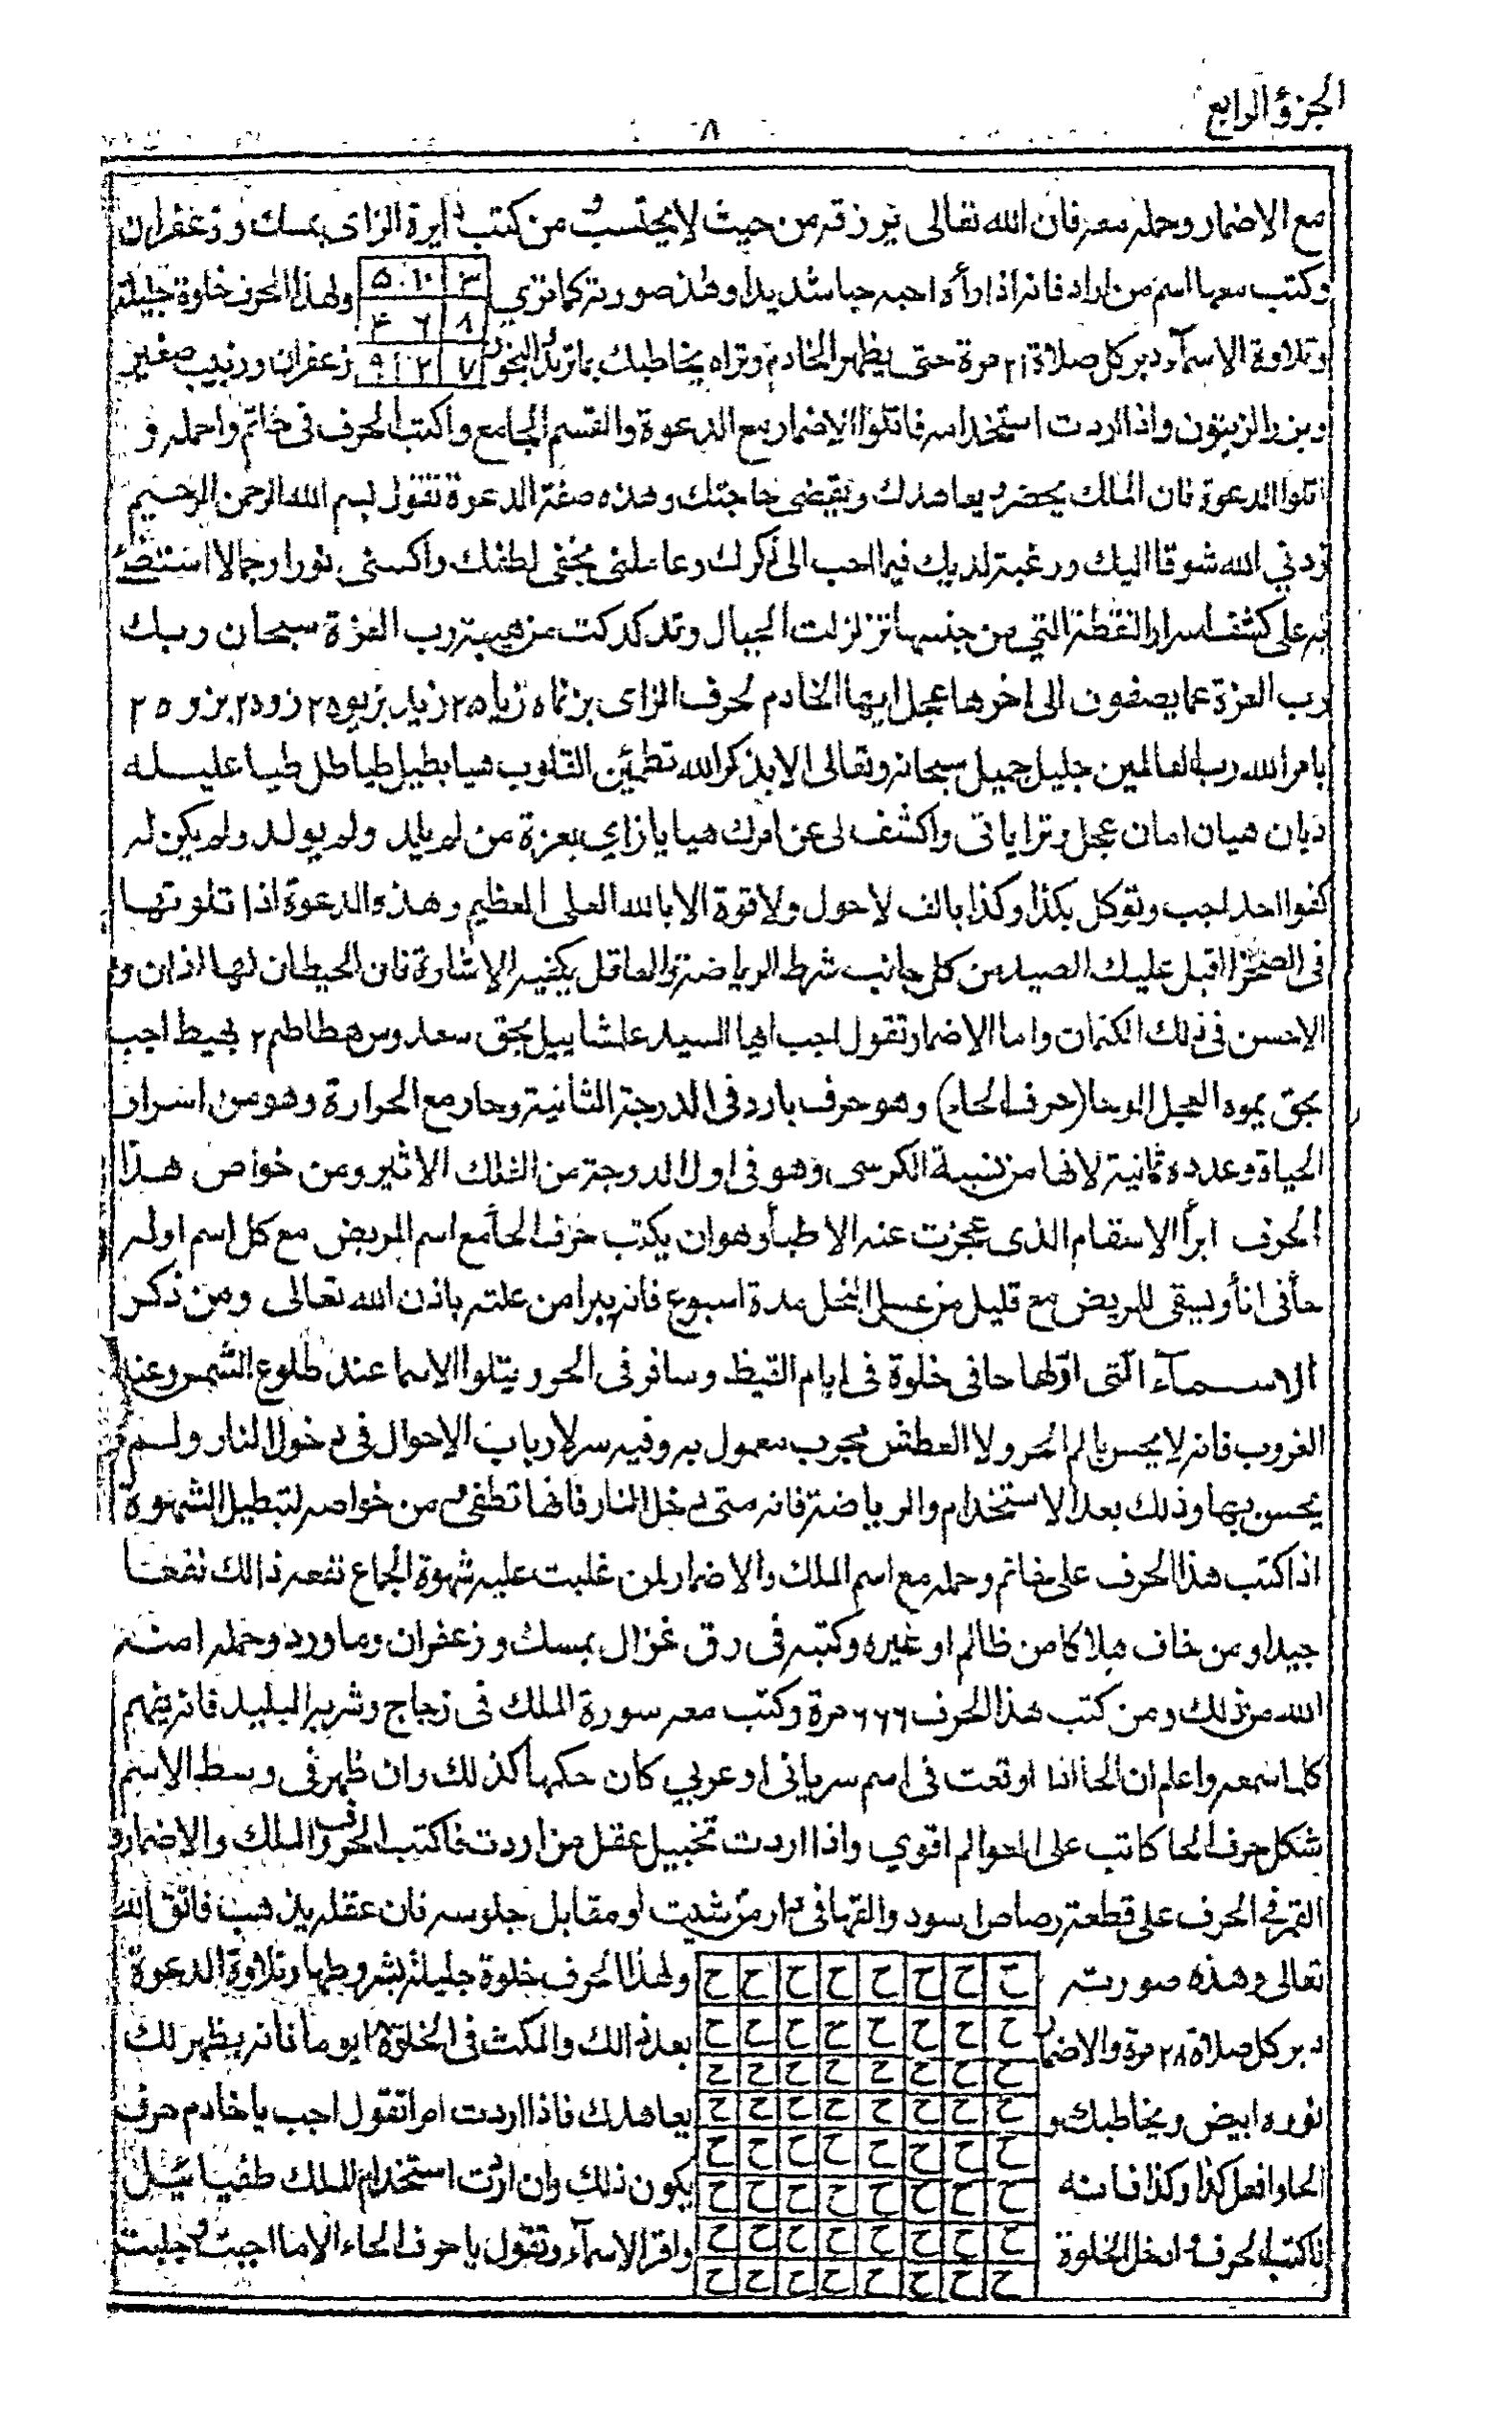 الجزؤ الرابع
٨
مع الاضمار وحمله معه فان الله تعالى يرزقه من حيث لا يحتسب ومن كتب دايرة الزاى بمسك وزعفران
وكتب معها اسم من اراد فانه اذا رأه احبه حبا شديدا وهذه صورته كما ترى
٣ ١٠ ٥
٨ ٦ ٤
٧ ٢ ٩
ولهذا الحرف خلوة جليلة
وتلاوة الاسمآء دبر كل صلاة ٢١ مرة حتى يظهر الخادم وتراه يخاطبك بما تريد والبخور زعفران وزبيب صغير
وبزر الزيتون واذا اردت استخدامه فاتلوا الاضمار مع الدعوة والقسم الجامع واكتب الحرف فى خاتم واحمله و
اتلوا الدعوة فان الملك يحضر ويعاهدك ويقضى حاجتك وهذه صفة الدعوة تقول بسم الله الرحمن الرحيم
زدني الله شوقا اليك ورغبة لديك فيما احب الى ذكرك وعاملنى بخفى لطفك واكسنى نورا وجمالا استضئ
به على كشف اسرار النقطة التي من جنسها تزلزلت الجبال وتدكدكت من هيبة رب العزة سبحان ربك
رب العزة عما يصفون الى اخرها عجل ايها الخادم لحرف الزاى بزناه زياه ٢ زيد بزيوه ٢ زود ٢ بزو ٢٥
بامر الله رب العالمين جليل جميل سبحانه وتعالى الا بذكر الله تطمئن القلوب هيا بطيل طياطل طيا عليله
ديان هيان امان عجل وترا ياتى واكشف لى عن امرك هيا يا زاي بعزة من لم يلد ولم يولد ولم يكن له
كفوا احد اجب وتوكل بكذا وكذا بالف لا حول ولا قوة الا بالله العلى العظيم وهذه الدعوة اذا تلوتها
فى الصحرا اقبل عليك الصيد من كل جانب شرط الرياضة والعاقل يكفيه الاشارة فان الحيطان لها اذان و
الاحسن فى ذلك الكتمان واما الاضمار تقول اجب ايها السيد علشاييل بحق سعدوس هطاطم ٢ بحيط اجب
بحق يموه العجل الوحا (حرف الحاء) وهو حرف بارد فى الدرجة الثانية وحار مع الحرارة وهو من اسرار
الحياة وعدده ثمانية لانها من نسبة الكرسى وهو فى اول الدرجة من الفلك الاثير ومن خواص هذا
الحرف ابرأ الاسقام الذى عجزت عنه الاطبأ وهو ان يكتب حرف الحأ مع اسم المريض مع كل اسم اوله
حأ فى انأ ويسقى للمريض مع قليل من عسل النحل مدة اسبوع فانه يبرا من علته باذن الله تعالى ومن ذكر
الاسمآء التى اولها حا فى خلوة فى ايام القيظ وسافر فى الحر ويتلوا الاسما عند طلوع الشمس وعند
الغروب فانه لا يحس بالم الحر ولا العطش مجرب معمول به وفيه سر لارباب الاحوال فى دخول النار ولم
يحسن بها وذلك بعد الاستخدام والرياضة فانه متى دخل النار فانها تطفئ ومن خواصه لتبطيل الشهوة
اذا كتب هذا الحرف على خاتم وحمله مع اسم الملك والاضمار لمن غلبت عليه شهوة الجماع نفعه ذالك نفعا
جيدا ومن خاف هلاكا من ظالم او غيره وكتبه فى رق غزال بمسك وزعفران وماورد وحمله امنه
الله من ذلك ومن كتب هذا الحرف ٦٦٦ مرة وكتب معه سورة الملك فى زجاج وشربه البليد فانه يفهم
كلما سمعه واعلم ان الحا اذا وقعت فى اسم سريانى او عربي كان حكمها كذلك وان ظهر فى وسط الاسم
شكل حرف الحا كاتب على احواله اقوي واذا اردت تخبيل عقل من اردت فاكتب الحرف والملك والاضمار و
القمر فى الحرف على قطعة رصاص اسود والقها فى دار من شيت او مقابل جلوسه فان عقله يذهب فاتق الله
تعالى وهذه صورته
ح ح ح ح ح ح ح ح
ح ح ح ح ح ح ح ح
ح ح ح ح ح ح ح ح
ح ح ح ح ح ح ح ح
ح ح ح ح ح ح ح ح
ح ح ح ح ح ح ح ح
ح ح ح ح ح ح ح ح
ح ح ح ح ح ح ح ح
ولهذا الحرف خلوة جليلة بشروطها وتلاوة الدعوة
دبر كل صلاة ٢٨ مرة والاضمار بعد ذالك والمكث فى الخلوة ايوما فانه يظهر لك
نوره ابيض ويخاطبك و يعاهدك فاذا اردت امرا تقول اجب يا خادم حرف
الحا وافعل كذا وكذا فانه يكون ذلك وان اردت استخدام الملك طفيائيل
فاكتب الحرف وادخل الخلوة واقرا الاسمآء وتقول يا حرف الحاء الا ما اجبت وجلبت